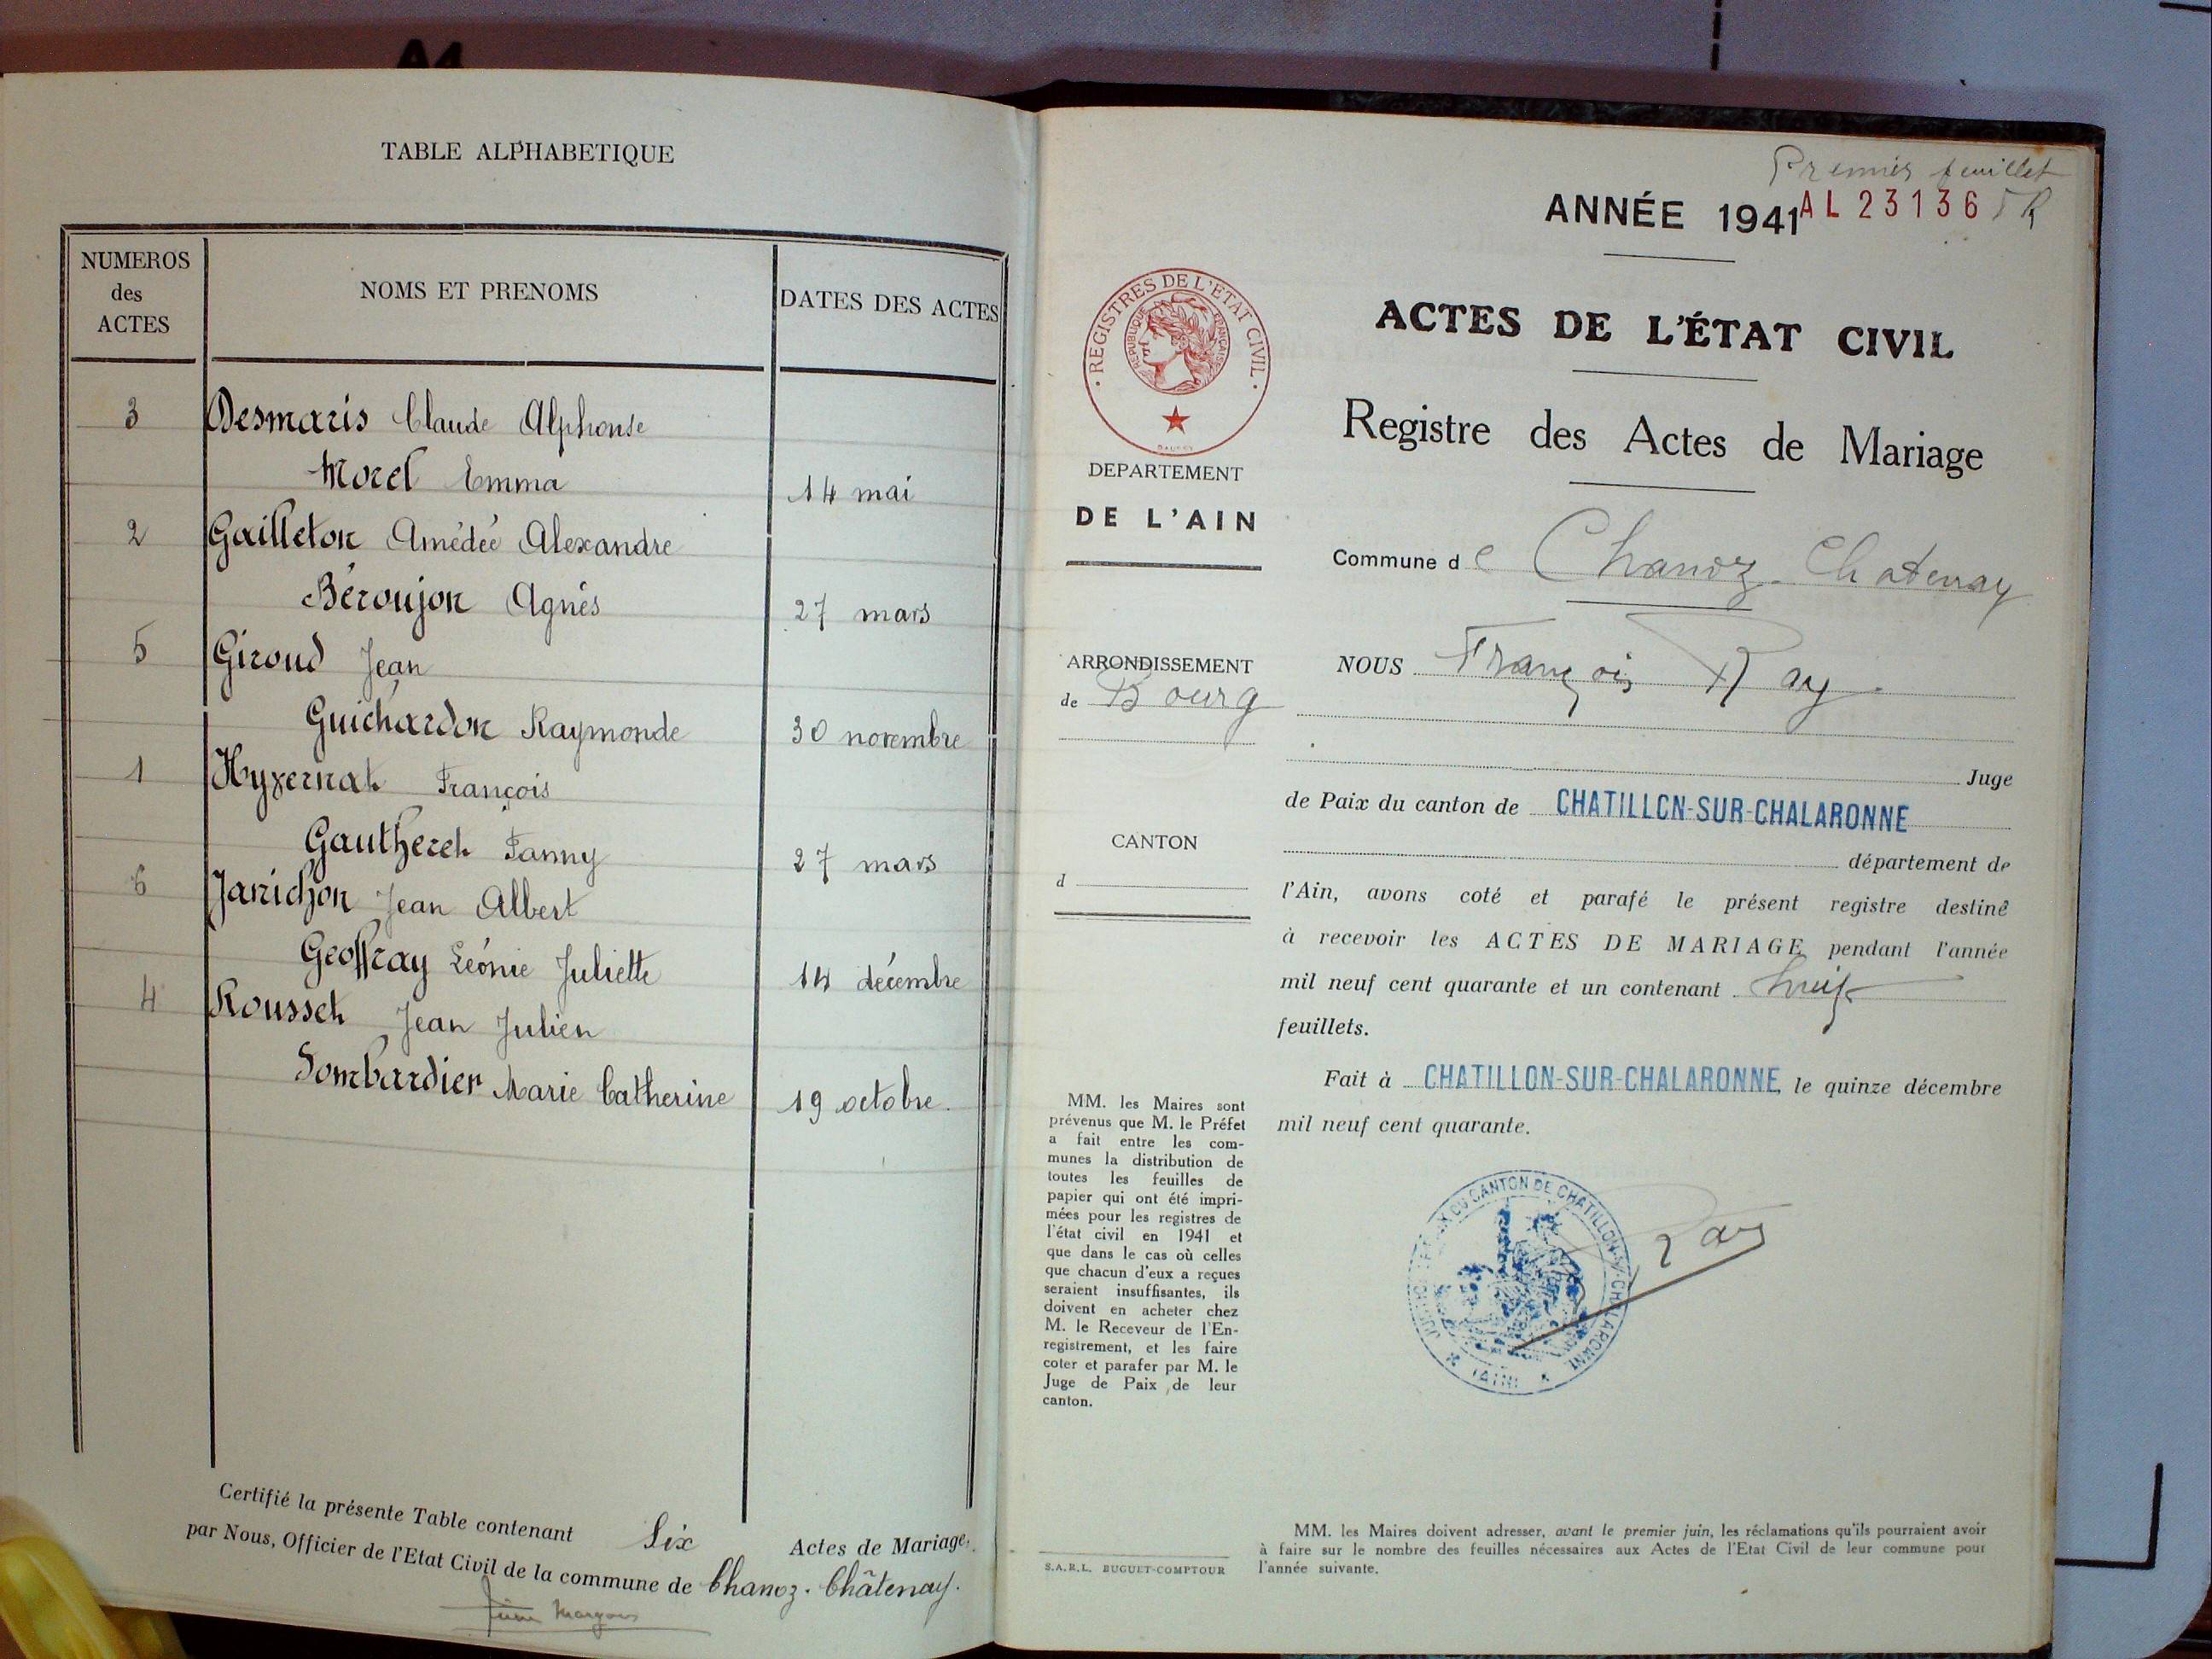 A4
TABLE ALPHABETIQUE
NUMEROS
des
ACTES
NOMS ET PRENOMS
DATES DES ACTES
3 Desmaris Claude Alphonse
Morel Emma 14 mai
2 Gailleton Amédée Alexandre
Béroujon Agnès 27 mars
5 Giroud Jean
Guichardon Raymonde 30 novembre
1 Hyvernat François
Gautheret Fanny 27 mars
6 Janichon Jean Albert
Geoffray Léonie Juliette 14 décembre
4 Rousset Jean Julien
Lombardier Marie Catherine 19 octobre.
Certifié la présente Table contenant Six Actes de Mariage,
par Nous, Officier de l'Etat Civil de la commune de Chanoz-Châtenay.
Premier feuillet
ANNÉE 1941
AL 23136
REGISTRES DE L'ÉTAT CIVIL
RÉPUBLIQUE FRANÇAISE
ACTES DE L'ÉTAT CIVIL
Registre des Actes de Mariage
DEPARTEMENT
DE L'AIN
Commune de Chanoz-Chatenay
ARRONDISSEMENT
de Bourg
NOUS François Ray
Juge
de Paix du canton de CHATILLON-SUR-CHALARONNE
CANTON
d
département de
l'Ain, avons coté et parafé le présent registre destiné
à recevoir les ACTES DE MARIAGE pendant l'année
mil neuf cent quarante et un contenant huit
feuillets.
Fait à CHATILLON-SUR-CHALARONNE, le quinze décembre
mil neuf cent quarante.
MM. les Maires sont
prévenus que M. le Préfet
a fait entre les com-
munes la distribution de
toutes les feuilles de
papier qui ont été impri-
mées pour les registres de
l'état civil en 1941 et
que dans le cas où celles
que chacun d'eux a reçues
seraient insuffisantes, ils
doivent en acheter chez
M. le Receveur de l'En-
registrement, et les faire
coter et parafer par M. le
Juge de Paix de leur
canton.
DU CANTON DE CHATILLON-S/-CHALARONNE
(AIN)
Ray
S.A.R.L. BUGUET-COMPTOUR
MM. les Maires doivent adresser, avant le premier juin, les réclamations qu'ils pourraient avoir
à faire sur le nombre des feuilles nécessaires aux Actes de l'Etat Civil de leur commune pour
l'année suivante.